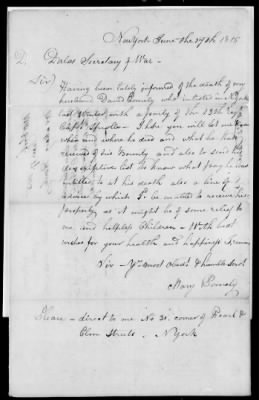 New York June the 27th 1815
D. Dallas Secretary of War —
Sir) Having been lately informed of the death of my
husband David Comely who inlisted in N York
last Winter, with a party of the 13th Regt
Capt I hope you will let me know
when and where he died and what he had
received of his Bounty and also to send his
descriptive list to know what pay he was
intitled to at his death also a line of
advice by which I be enabled to receive his
property as it might be of some relief to
me and helpless Children — With best
wishes for your health and happiness I remain
Sir — Yr most Obedt & humble Servt
Mary Comely
Please — direct to me No 30, corner of Pearl &
Elm Streets — N York